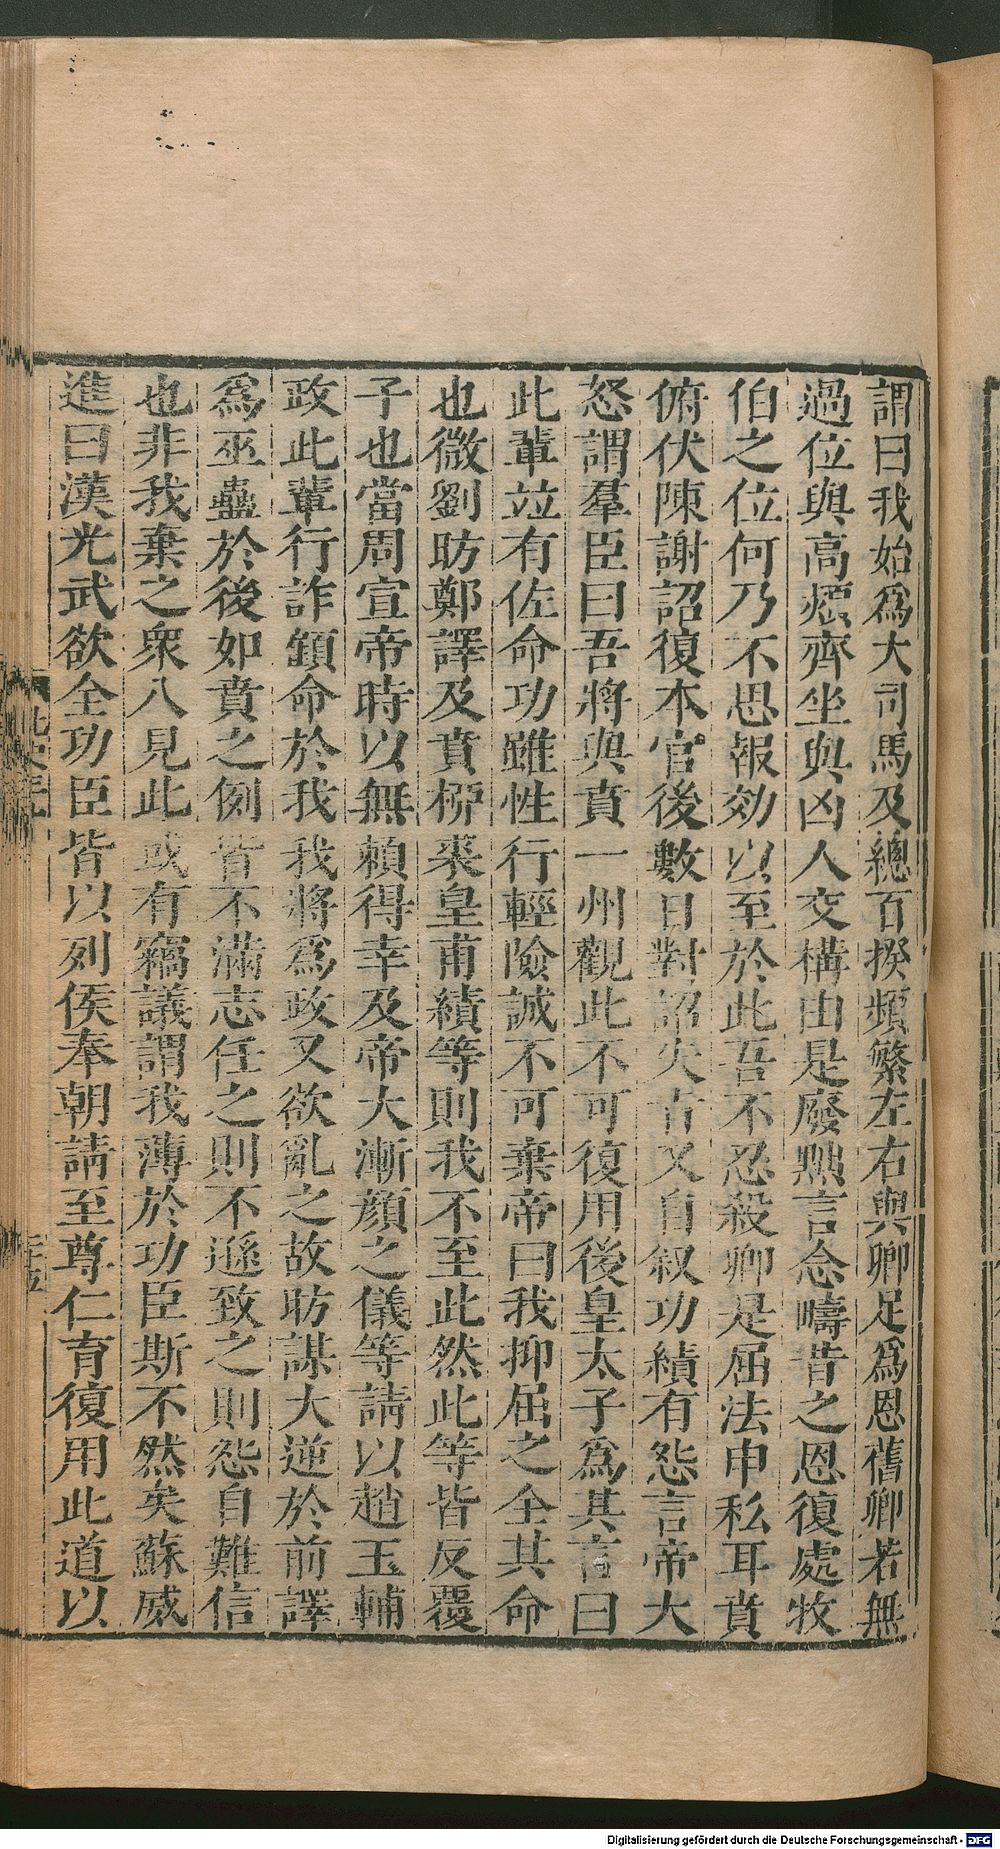 謂曰我始爲大司馬及總百揆頻繁左右與卿足爲恩舊卿若無
過位與高熲齊坐與凶人交構由是廢黜言念疇昔之恩復處牧
伯之位何乃不思報効以至於此吾不忍殺卿是屈法申私耳賁
俯伏陳謝詔復本官後數日對詔失旨又自叙功績有怨言帝大
怒謂羣臣曰吾將與賁一州觀此不可復用後皇太子爲其言曰
此輩竝有佐命功雖性行輕險誠不可棄帝曰我抑屈之全其命
也微劉昉鄭譯及賁栁裘皇甫績等則我不至此然此等皆反覆
子也當周宣帝時以無賴得幸及帝大漸顏之儀等請以趙王輔
政此輩行詐顧命於我我將爲政又欲亂之故昉謀大逆於前譯
爲巫蠱於後如賁之例皆不滿志任之則不遜致之則怨自難信
也非我棄之衆人見此或有竊議謂我薄於功臣斯不然矣蘇威
進曰漢光武欲全功臣皆以列侯奉朝請至尊仁育復用此道以
Digitalisierung gefördert durch die Deutsche Forschungsgemeinschaft - DFG